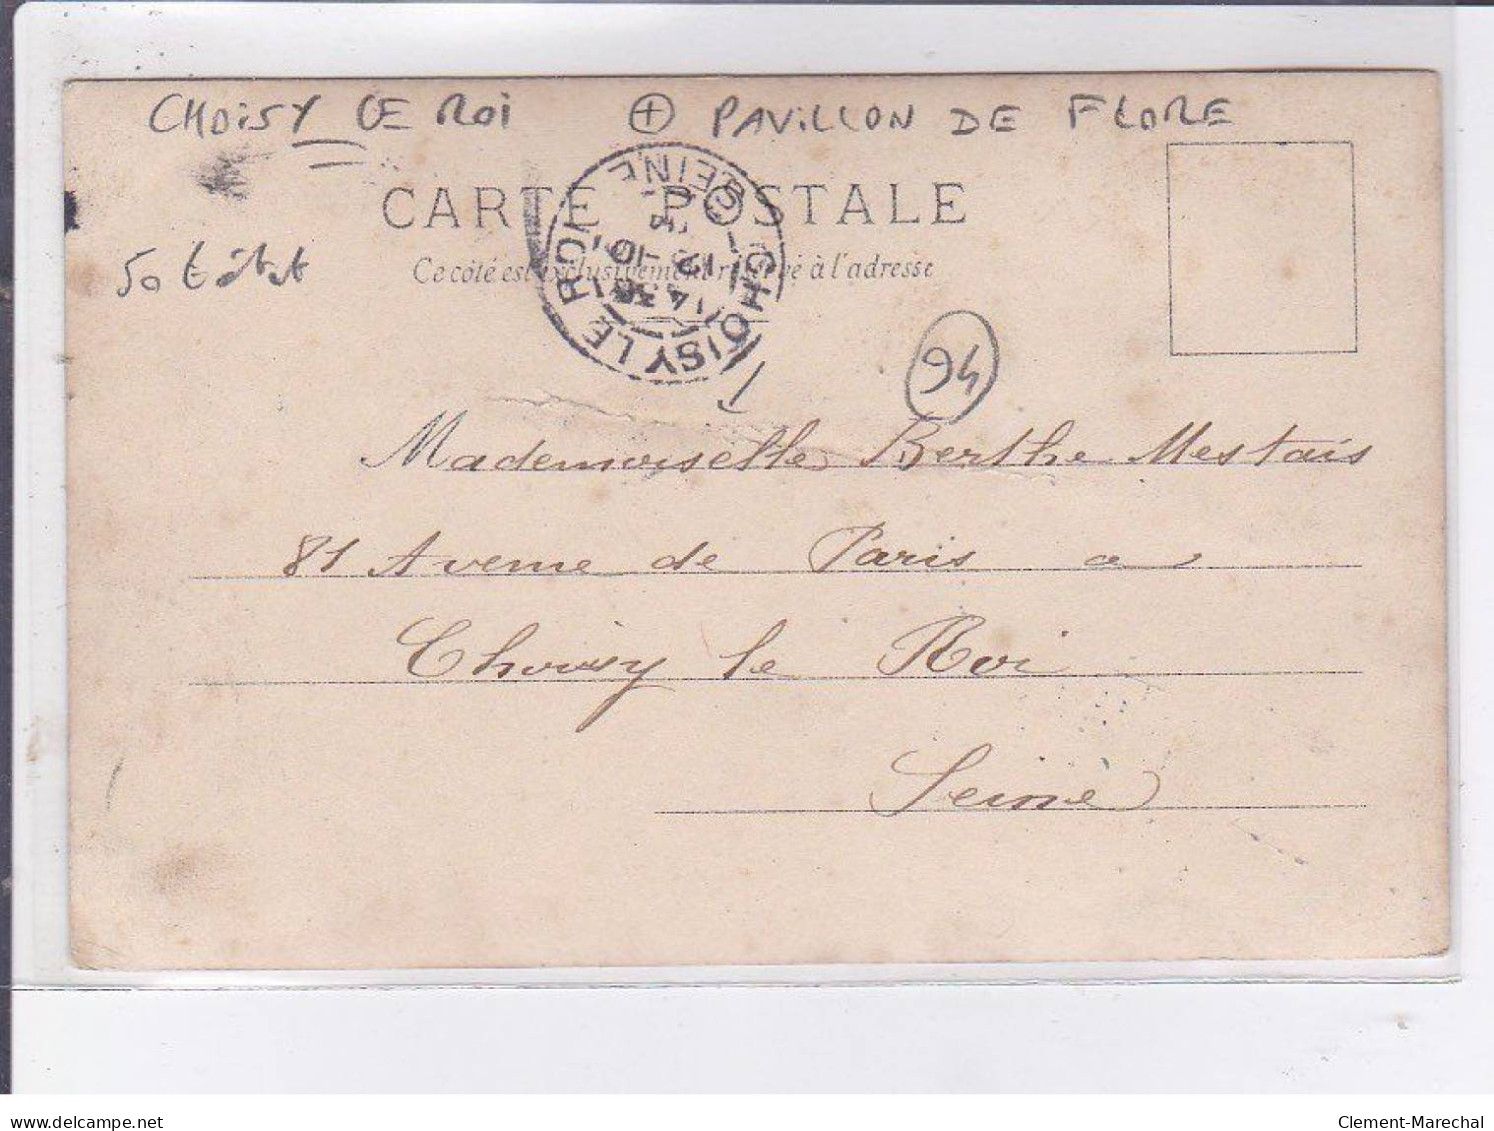 CHOISY LE ROI + PAVILLON DE FLORE
CARTE POSTALE
Ce côté est exclusivement réservé à l'adresse
CHOISY LE ROI
SEINE
50 t état
94
Mademoiselle Berthe Mestais
81 Avenue de Paris a
Choisy le Roi
Seine
delcampe.net
Clement-Marechal